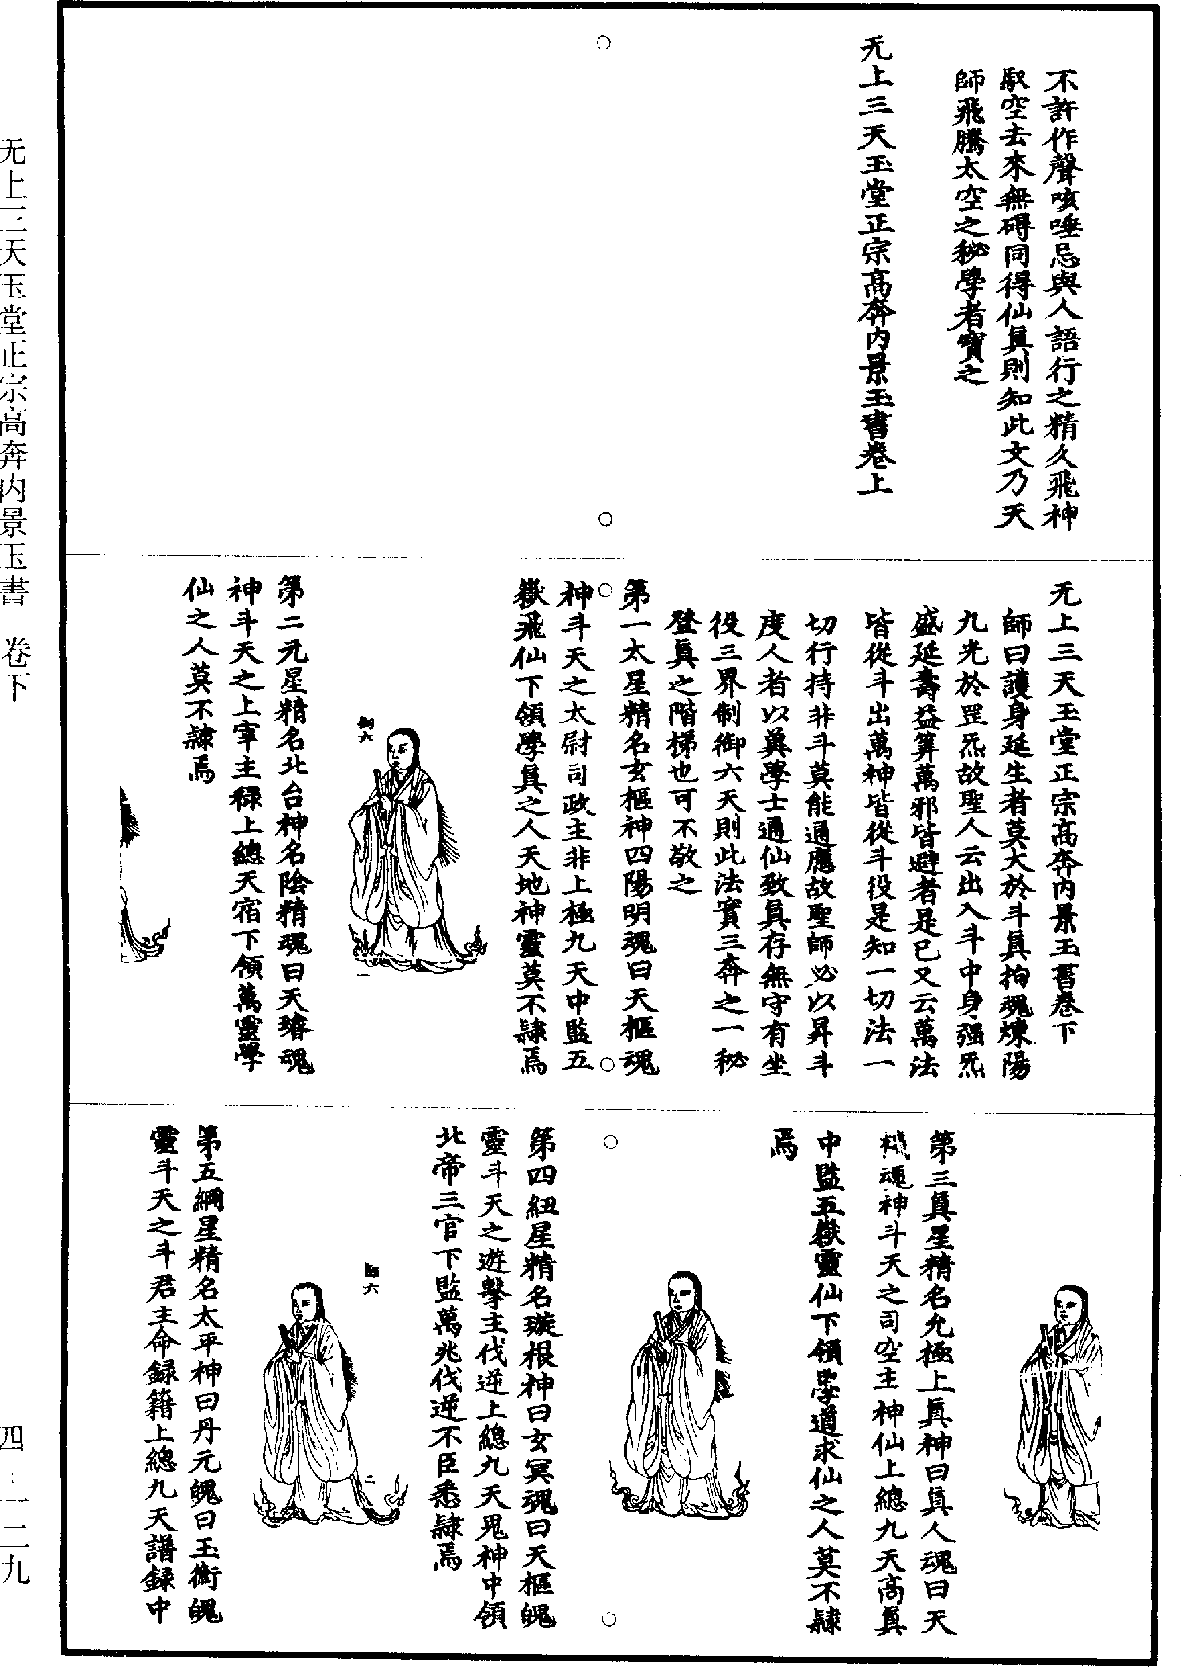 不許作聲咳唾忌與人語行之精久飛神
馭空去來無碍同得仙眞則知此文乃天
師飛騰太空之秘學者寶之
无上三天玉堂正宗高奔内景玉書卷上
无上三天玉堂正宗高奔内景玉書卷下
師曰護身延生者莫大於斗眞拘魂煉陽
九光於罡炁故聖人云出入斗中身强炁
盛延壽益算萬邪皆避者是已又云萬法
皆從斗出萬神皆從斗役是知一切法一
切行持非斗莫能通應故聖師必以昇斗
度人者以奠學士通仙致眞存無守有坐
役三界制御六天則此法實三奔之一秘
登眞之階梯也可不敬之
第一太星精名玄樞神四陽明魂曰天樞魂
神斗天之太尉司政主非上極九天中監五
嶽飛仙下領學眞之人天地神靈莫不隷焉
第二元星精名北台神名陰精魂曰天璿魂
神斗天之上宰主祿上總天宿下領萬靈學
仙之人莫不隷焉
第三眞星精名允極上眞神曰眞人魂曰天
機魂神斗天之司空主神仙上總九天高眞
中監五嶽靈仙下領學道求仙之人莫不隷
焉
第四紐星精名璇根神曰玄冥魂曰天樞魄
靈斗天之遊擊主伐逆上總九天鬼神中領
北帝三官下監萬兆伐逆不臣悉隷焉
第五綱星精名太平神曰丹元魄曰玉衡魄
靈斗天之斗君主命錄籍上總九天譜錄中
无上三天玉堂正宗高奔内景玉書 卷下
四·一二九